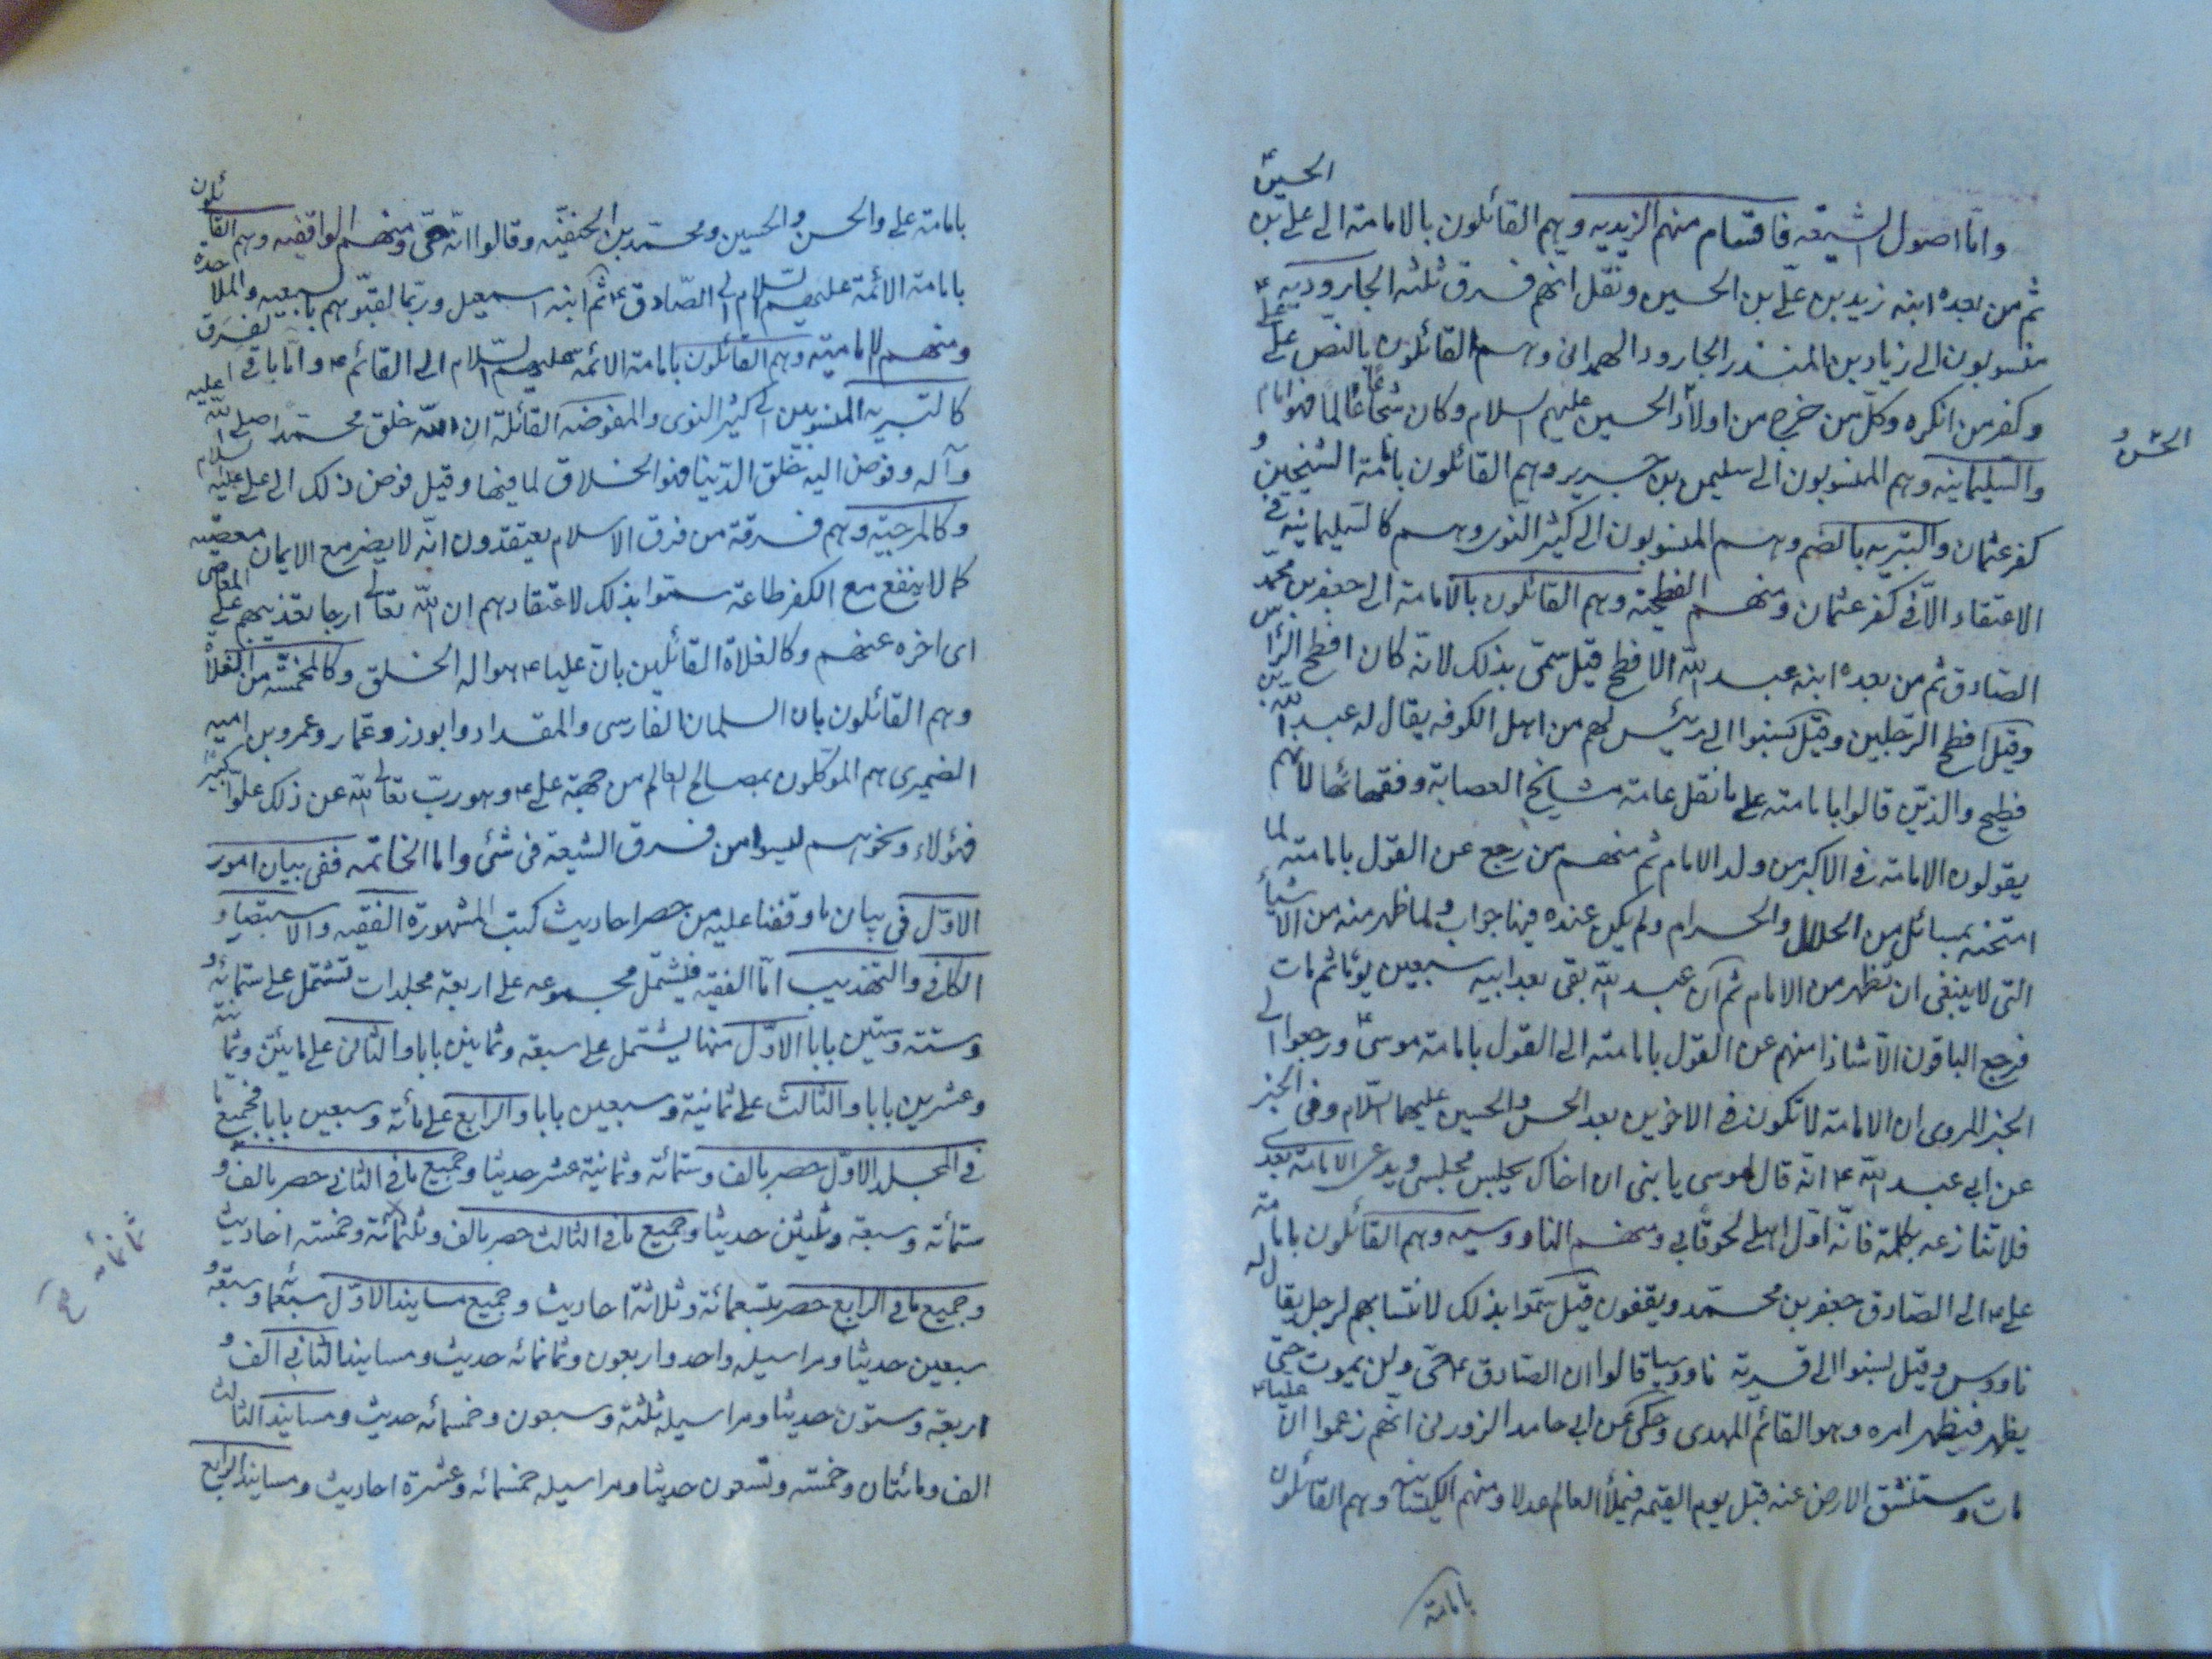 واما اصول الشيعة فاقسام منهم الزيديه وهم القائلون بالامامة الى على بن الحسينؑ
ثم من بعده ابنه زيد بن على بن الحسين ونقل انهم فرق ثلثه الجاروديه
منسوبون الى زياد بن المنذر الجارود الهمدانى وهم القائلون بالنص على علىؑ
وكفر من انكره وكل من خرج من اولاد الحسن والحسين عليهم السلام وكان شجاعا عالما فهو امام
والسليمانيه وهم المنسوبون الى سليمن بن جرير وهم القائلون بامامة الشيخين و
كفر عثمان والبتريه بالضم وهم المنسوبون الى كثير النوى وهم كالسليمانيه فى
الاعتقاد الا فى كفر عثمان ومنهم الفطحية وهم القائلون بالامامة الى جعفر بن محمد
الصادق ثم من بعده ابنه عبد الله الافطح قيل سمى بذلك لانه كان افطح الراس
وقيل افطح الرجلين وقيل نسبوا الى رئيس لهم من اهل الكوفه يقال له عبد الله بن
فطيح والذين قالوا بامامته على ما نقل عامة مشايخ العصابة وفقهائها لانهم
يقولون الامامة فى الاكبر من ولد الامام ثم منهم من رجع عن القول بامامته لما
امتحنه بمسائل من الحلال والحرام ولم يكن عنده فيها جواب ولما ظهر منه من الاشياء
التى لا ينبغى ان تظهر من الامام ثم ان عبد الله بقى بعد ابيه سبعين يوما ثم مات
فرجع الباقون الا شاذا منهم عن القول بامامته الى القول بامامة موسىؑ ورجعوا الى
الخبر المروى ان الامامة لا تكون فى الاخوين بعد الحسن والحسين عليهما السلام وفى الخبر
عن ابى عبد الله ع انه قال لموسى يا بنى ان اخاك يجلس مجلسى ويدعى الامامة بعدى
فلا تنازعه بكلمة فانه اول اهلى لحوقا بى ومنهم الناووسيه وهم القائلون بامامة
على ع الى الصادق جعفر بن محمد ويقفون قيل سموا بذلك لانتسابهم لرجل يقال له
ناووس وقيل نسبوا الى قرية ناووسيا قالوا ان الصادق ع حى ولن يموت حتى
يظهر فيظهر امره وهو القائم المهدى وحكى عن ابى حامد الزوزنى انهم زعموا ان علياؑ
مات وستنشق الارض عنه قبل يوم القيمه فيملأ العالم عدلا ومنهم الكيسانيه وهم القائلون
بامامة
الحسن و
بامامة على والحسن والحسين ومحمد بن الحنفيه وقالوا انه حى ومنهم الواقفيه وهم القائلون
بامامة الائمة عليهم السلام الى الصادق ع ثم ابنه اسمعيل وربما لقبوهم بالسبعيه والملاحدة
ومنهم الاماميه وهم القائلون بامامة الائمه عليهم السلام الى القائم ع واما باقى الفرق
كالبتريه المنسوبين الى كثير النوى والمفوضه القائلة ان الله خلق محمدا صلى الله عليه
وآله وفوض اليه خلق الدنيا فهو الخلاق لما فيها وقيل فوض ذلك الى على عليه السلام
وكالمرجية وهم فرقة من فرق الاسلام يعتقدون انه لا يضر مع الايمان معصيه
كما لا ينفع مع الكفر طاعة سموا بذلك لاعتقادهم ان الله تعالى ارجا تعذيبهم على المعاصى
اى اخره عنهم وكالغلاة القائلين بان عليا ع هو اله الخلق وكالمخمسة من الغلاة
وهم القائلون بان السلمان الفارسى والمقداد وابوذر وعمار وعمرو بن اميه
الضميرى هم الموكلون بمصالح العالم من جهة على ع وهو رب تعالى الله عن ذلك علوا كبيرا
فهؤلاء ونحوهم ليسوا من فرق الشيعة فى شئ واما الخاتمه ففى بيان امور
الاول فى بيان ما وقفنا عليه من حصر احاديث كتب المشهورة الفقيه والاستبصار و
الكافى والتهذيب اما الفقيه فيشتمل مجموعه على اربعة مجلدات تشتمل على ستمائة و
وستة وستين بابا الاول منها يشتمل على سبعة وثمانين بابا والثانى على مائتين وثمانية
وعشرين بابا والثالث على ثمانية وسبعين بابا والرابع على مائة وسبعين بابا فجميع ما
فى المجلد الاول حصر بالف وستمائة وثمانية عشر حديثا وجميع ما فى الثانى حصر بالف و
ستمائة وسبعة وثلثين حديثا وجميع ما فى الثالث حصر بالف وثلثمائة وخمسة احاديث
وجميع ما فى الرابع حصر بتسعمائة وثلاثة احاديث وجميع مسانيد الاول سبعمائة وسبعة و
سبعين حديثا ومراسيله واحد واربعون وثمانمائه حديث ومسانيد الثانى الف و
اربعة وستون حديثا ومراسيله ثلثة وسبعون وخمسمائه حديث ومسانيد الثالث
الف ومائتان وخمسة وتسعون حديثا ومراسيله خمسمائه وعشرة احاديث ومسانيد الرابع
ثمانمائه